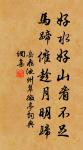 好水好山看不足
馬蹄催趁月明歸
岳飛池州翠微亭詞典
調寄